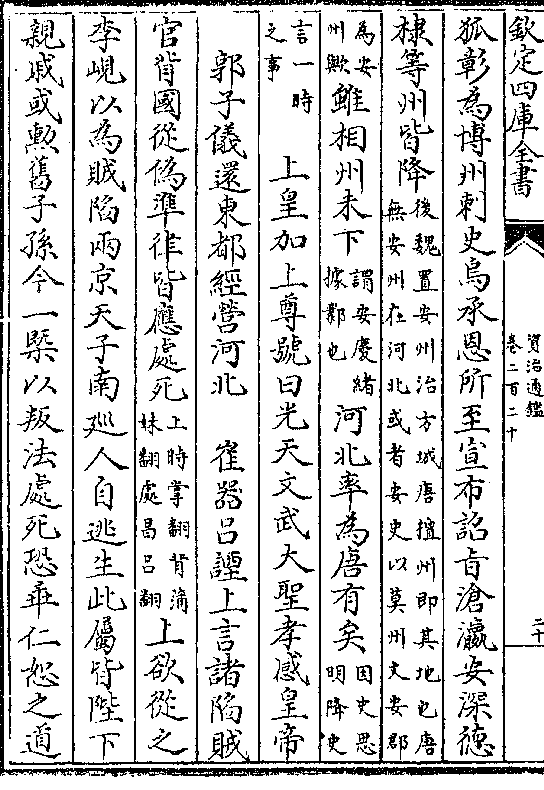 欽定四庫全書
資治通鑑
卷二百二十
二十
狐彰為博州刺史烏承恩所至宣布詔旨滄瀛安深德
棣等州皆降後魏置安州治方城唐檀州即其地也唐
無安州在河北或者安史以莫州文安郡
為安
州歟雖相州未下謂安慶緒
據鄴也河北率為唐有矣因史思
明降史
言一時
之事 上皇加上尊號曰光天文武大聖孝感皇帝
郭子儀還東都經營河北 崔器呂諲上言諸陷賊
官背國從偽準律皆應處死上時掌翻背蒲
妹翻處昌呂翻上欲從之
李峴以為賊陷兩京天子南廵人自逃生此屬皆陛下
親戚或勲舊子孫今一槩以叛法處死恐乖仁恕之道